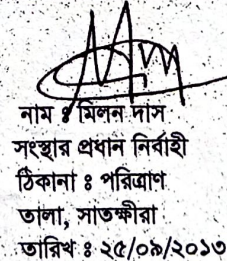 নাম ঃ মিলন দাস
সংস্থার প্রধান নির্বাহী
ঠিকানা ঃ পরিত্রাণ
তালা, সাতক্ষীরা
তারিখ ঃ ২৫/০৯/২০১৩